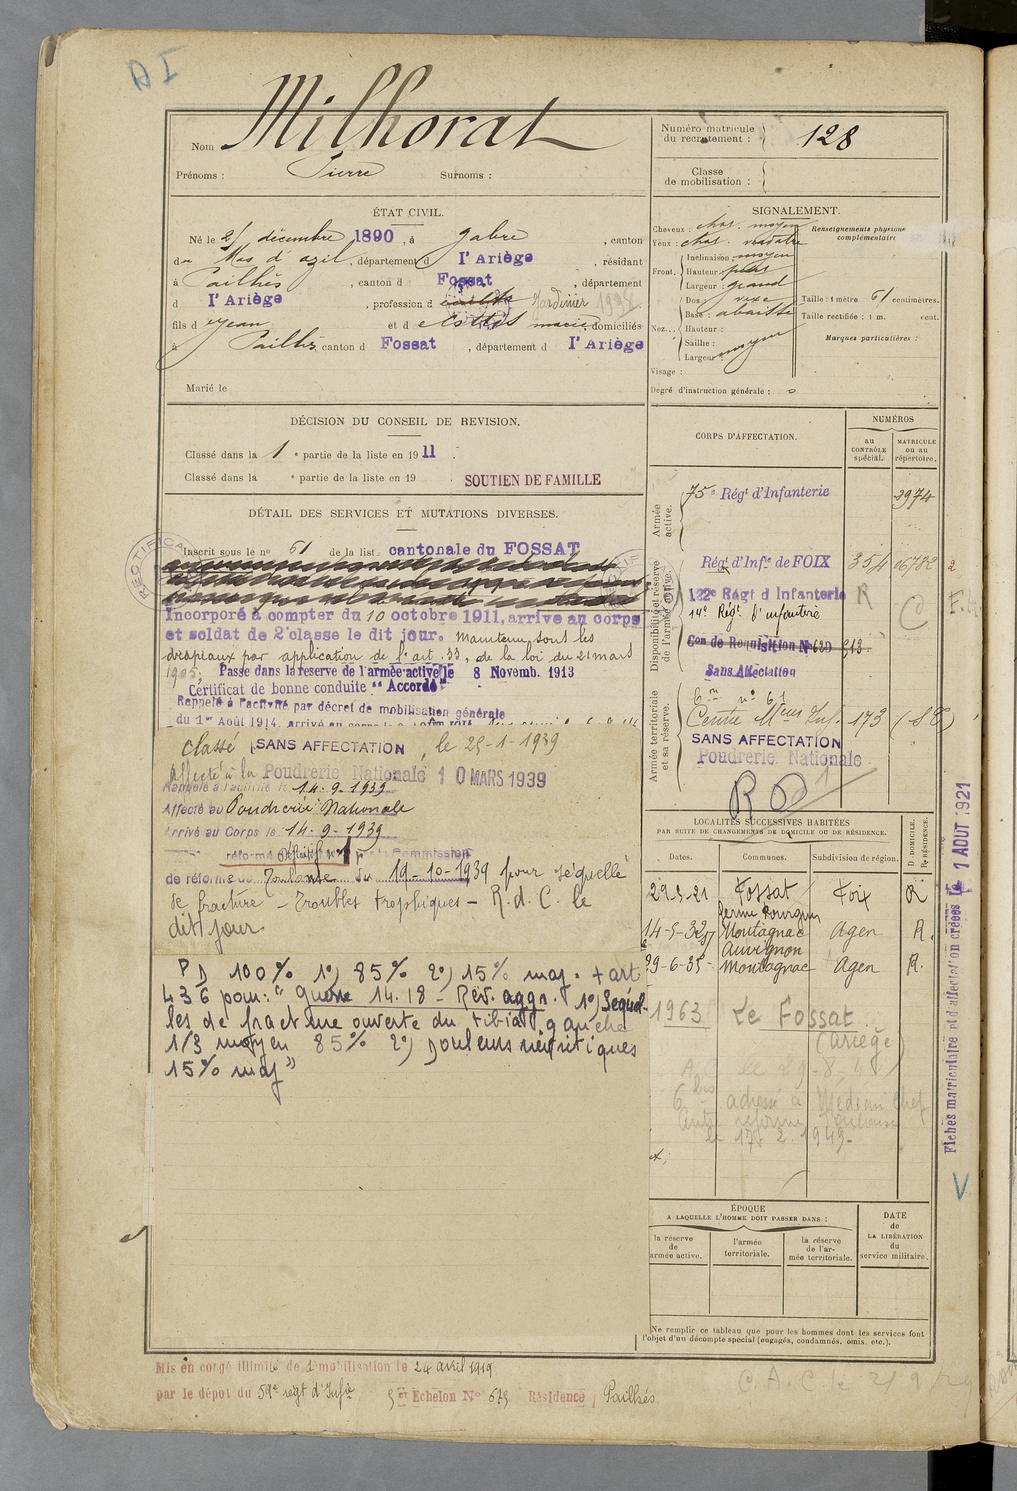 A I
Nom Milhorat
Prénoms : Pierre Surnoms :
Numéro matricule du recrutement : 128
Classe de mobilisation :
ÉTAT CIVIL.
Né le décembre 1890, à Gabre, canton
du Mas d'azil, département d l'Ariège, résidant
à Pailhès, canton d Fossat, département
d l'Ariège, profession d Jardinier
fils d Jean et d marie domiciliés
à Pailhès canton d Fossat, département d l'Ariège
Marié le
SIGNALEMENT.
Cheveux : chat. moyen
Yeux : chat. verdatre
Front. Inclinaison : moyen
Hauteur :
Largeur : grand
Nez. Dos : vexe
Base : abaissée
Hauteur :
Saillie :
Largeur : moyen
Visage :
Degré d'instruction générale :
Renseignements physionomiques complémentaires
Taille : 1 mètre 61 centimètres.
Taille rectifiée : 1 m. cent.
Marques particulières :
DÉCISION DU CONSEIL DE REVISION.
Classé dans la 1 e partie de la liste en 1911.
Classé dans la e partie de la liste en 19
SOUTIEN DE FAMILLE
DÉTAIL DES SERVICES ET MUTATIONS DIVERSES.
Inscrit sous le no 61 de la liste cantonale du FOSSAT
RECTIFICA
Incorporé à compter du 10 octobre 1911, arrive au corps
et soldat de 2e classe le dit jour. Maintenu sous les
drapeaux par application de l'art. 33, de la loi du 21 mars
1905. Passe dans la réserve de l'armée active le 8 Novemb. 1913
Certificat de bonne conduite "Accordé"
Rappelé à l'activité par décret de mobilisation générale
du 1er Août 1914, arrivé au corps le
classé SANS AFFECTATION, le 25-1-1939
Affecté à la Poudrerie Nationale 10 MARS 1939
Rappelé à l'activité le 14-9-1939
Affecté au Poudrerie Nationale
Arrivé au Corps le 14-9-1939
réformé définitif n° 1 par la Commission
de réforme de Toulouse du 19-10-1939 pour séquelle
de fracture - Troubles trophiques - R.d.C. le
dit jour
P D 100% 1°) 85% 2°) 15% maj. + art
436 pour : "Guerre 14.18 - Rév. aggr. 1°) Séquel-
les de fracture ouverte du tibia gauche
1/3 moyen 85% 2°) Douleurs névritiques
15% maj"
CORPS D'AFFECTATION.
NUMÉROS
au CONTRÔLE spécial.
MATRICULE ou au répertoire.
Armée active.
75e Régt d'Infanterie 2974
Disponibilité et réserve de l'armée active.
Régt d'Infie de FOIX 354 16782
122e Régt d Infanterie R
14e Régt d'infanterie
Con de Requisition No
Sans Affectation
Armée territoriale et sa réserve.
6 m n° 61
Centre Mcur Inf. 173
SANS AFFECTATION
Poudrerie Nationale
LOCALITÉS SUCCESSIVES HABITÉES
PAR SUITE DE CHANGEMENTS DE DOMICILE OU DE RÉSIDENCE.
Dates. Communes. Subdivision de région. D. DOMICILE. R. RÉSIDENCE.
29-5-21 Fossat Foix R
14-5-32 Montagnac Agen R.
29-6-35 Auvignon Montagnac Agen R.
1963 Le Fossat
(Ariège)
6 bis adressé à Médecin Chef
Centre réforme Toulouse
le 17. 2. 1949-
Fiches matriculaire et d'affectation créées le 1 AOUT 1921
V
ÉPOQUE
A LAQUELLE L'HOMME DOIT PASSER DANS :
la réserve de armée active.
l'armée territoriale.
la réserve de l'armée territoriale.
DATE de LA LIBÉRATION du service militaire.
Ne remplir ce tableau que pour les hommes dont les services font
l'objet d'un décompte spécial (engagés, condamnés, omis, etc.).
Mis en congé illimité de démobilisation le 24 avril 1919
par le dépôt du 59e régt d'Infie 5 er Echelon No 675 Résidence, Pailhès
C.A.C le